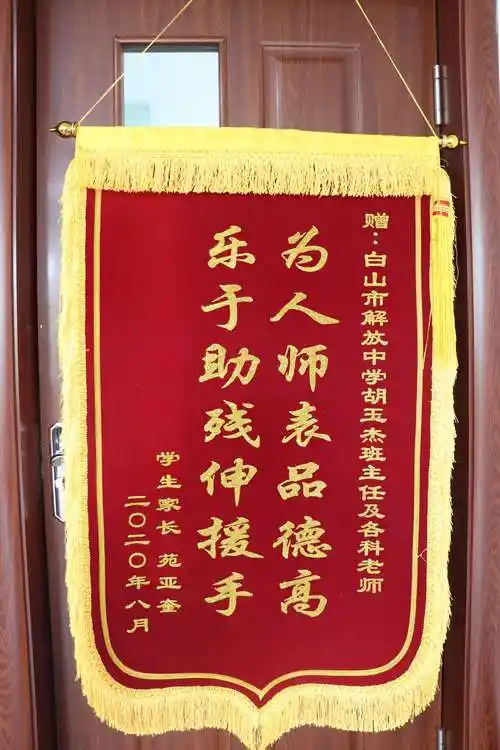 赠：白山市解放中学胡玉杰班主任及各科老师
为人师表品德高
乐于助残伸援手
学生家长 苑亚奎
二〇二〇年八月